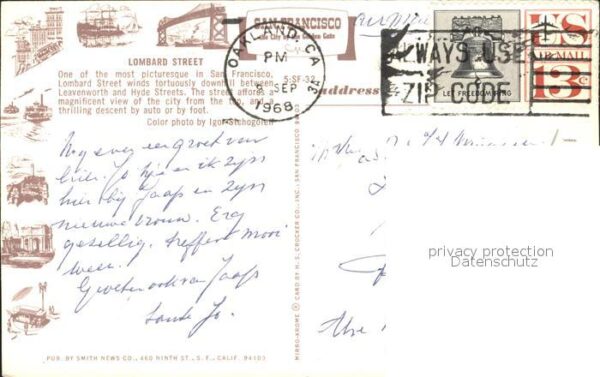 SAN FRANCISCO
City by the Golden Gate
LOMBARD STREET
One of the most picturesque in San Francisco,
Lombard Street winds tortuously downhill between
Leavenworth and Hyde Streets. The street affords a
magnificent view of the city from the top, and a
thrilling descent by auto or by foot.
Color photo by Igor Stchogoleff
5-SF-32
address
OAKLAND, CA
PM
SEP
1968
ALWAYS USE
ZIP CODE
LET FREEDOM RING
US
AIR MAIL
13c
Nog even een groet van
hier. Jo en ik zijn
hier bij Jaap en zijn
nieuwe vrouw. Erg
gezellig. treffen mooi
weer.
Groeten ook van Jaap
tante Jo.
the
privacy protection
Datenschutz
MIRRO-KROME ® CARD BY H. S. CROCKER CO., INC., SAN FRANCISCO
PUB. BY SMITH NEWS CO., 460 NINTH ST., S. F., CALIF. 94103